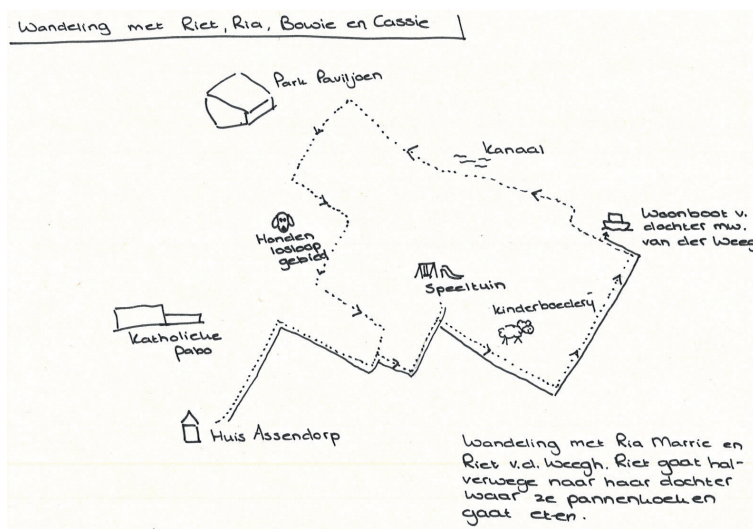 Wandeling met Riet, Ria, Bowie en Cassie
Park Paviljoen
kanaal
Woonboot v.
dochter mw.
van der Weeg
Honden
losloop
gebied
Speeltuin
kinderboederij
Katholieke
pabo
Huis Assendorp
Wandeling met Ria Marrie en
Riet v.d. Weegh. Riet gaat hal-
verwege naar haar dochter
waar ze pannenkoeken
gaat eten.